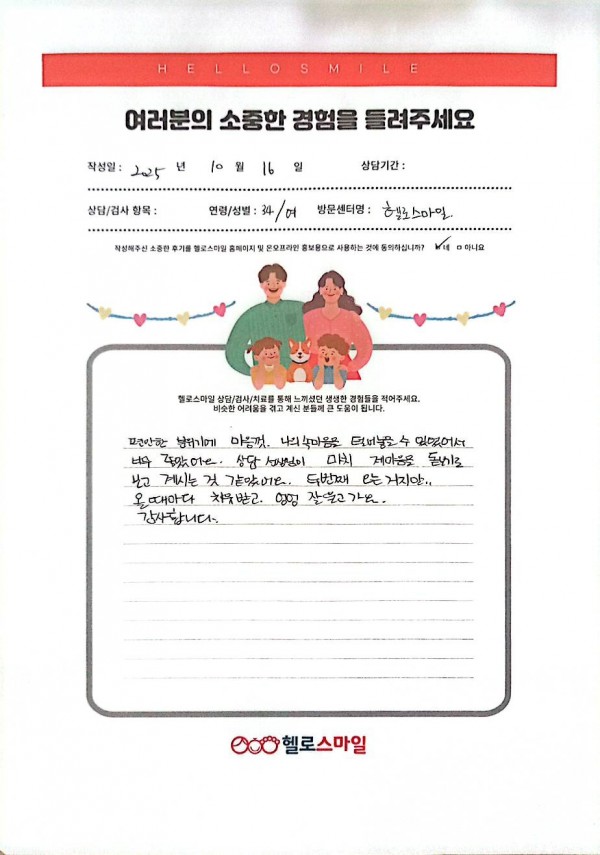 HELLOSMILE
여러분의 소중한 경험을 들려주세요
작성일 : 2025 년 10 월 16 일 상담기간 :
상담/검사 항목 : 연령/성별 : 34/여 방문센터명 : 헬로스마일.
작성해주신 소중한 후기를 헬로스마일 홈페이지 및 온오프라인 홍보용으로 사용하는 것에 동의하십니까? ✓네 ㅁ아니요
헬로스마일 상담/검사/치료를 통해 느끼셨던 생생한 경험들을 적어주세요.
비슷한 어려움을 겪고 계신 분들께 큰 도움이 됩니다.
편안한 분위기에 마음껏. 나의 속마음을 터놓을 수 있었어서
너무 좋았어요. 상담 선생님이 마치 제마음을
보고 계시는 것 같았어요. 두번째 오는 거지만..
올 때마다 치유받고. 엉엉 잘 울고 가요.
감사합니다.
헬로스마일